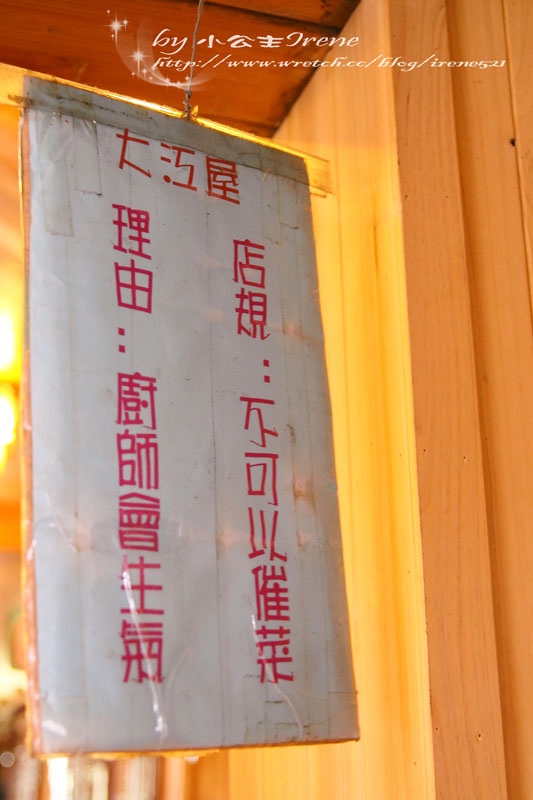 by 小公主Irene
http://www.wretch.cc/blog/irene521
大江屋
店規：不可以催菜
理由：廚師會生氣